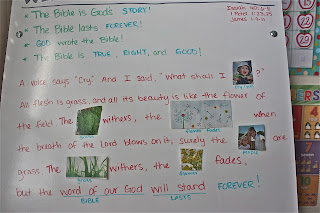 • The Bible is God's STORY!
• The Bible lasts FOREVER!
• GOD wrote the Bible!
• The Bible is TRUE, RIGHT, and GOOD!
Isaiah 40:6-8
1 Peter 1:23-25
James 1:9-11
A voice says "Cry." And I said, "What shall I ?"
All flesh is grass, and all its beauty is like the flower of
the field. The withers, the when
grass fades
the breath of the Lord blows on it; surely the are
people
grass. The withers, the fades,
grass flower
but the word of our God will stand FOREVER!
BIBLE LASTS
22
29